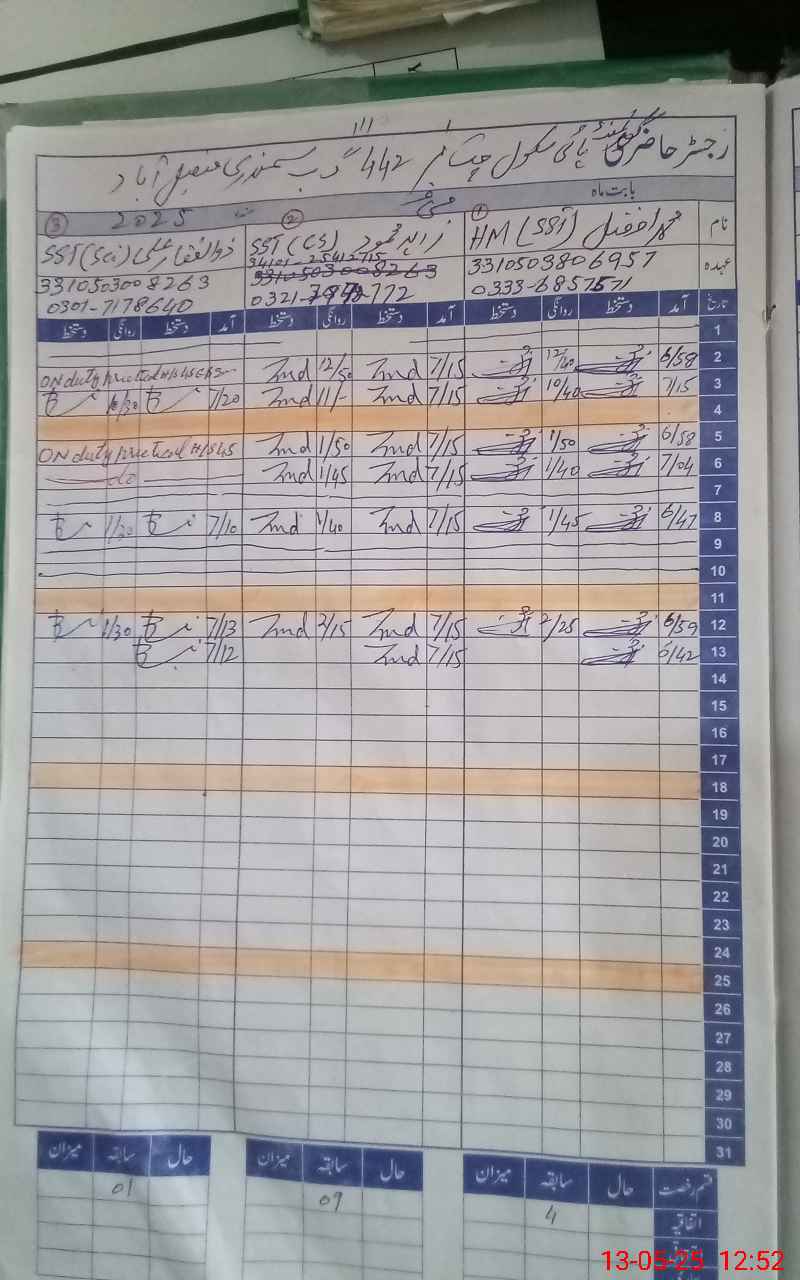 رجسٹر حاضری گورنمنٹ ہائی سکول چک نمبر 442 گ ب سمندری فیصل آباد
بابت ماہ مئی 2025
نام ① محمد افضل HM (SST) ② زاہد محمود SST (CS) ③ ذوالفقار علی SST (Sci)
عہدہ 3310503806957 34101-25412715 3310503008263
3310503008263
0333-6857571 0301-7178640
تاریخ آمد دستخط روانگی دستخط آمد دستخط روانگی دستخط آمد دستخط روانگی دستخط
1
2 6/58 12/40 7/15 Zmd 12/50 Zmd ON duty practical
3 7/15 10/40 7/15 Zmd 11/- Zmd 7/20
4
5 6/58 1/50 7/15 Zmd 1/50 Zmd ON duty practical
6 7/04 1/40 7/15 Zmd 1/45 Zmd do
7
8 6/47 1/45 7/15 Zmd 1/40 Zmd 7/10 1/30
9
10
11
12 6/59 2/25 7/15 Zmd 2/15 Zmd 7/13 1/30
13 6/42 7/15 Zmd 7/12
14
15
16
17
18
19
20
21
22
23
24
25
26
27
28
29
30
31
قسم رخصت حال سابقہ میزان حال سابقہ میزان حال سابقہ میزان
اتفاقیہ 4 09 01
13-05-25 12:52